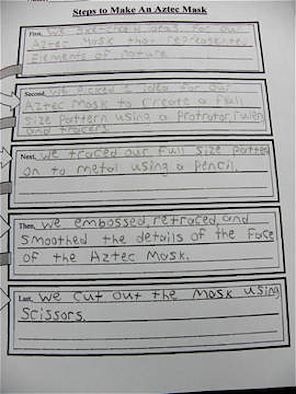 Steps to Make An Aztec Mask
First, we sketched ideas for our
Aztec Mask that represented
Elements of nature.
Second, we picked 1 idea for our
Aztec Mask to create a full
size pattern using a protrator, rulers
and tracers.
Next, we traced our full size pattern
on to metal using a pencil.
Then, we embossed, retraced, and
smoothed the details of the face
of the Aztec Mask.
Last, we cut out the mask using
scissors.